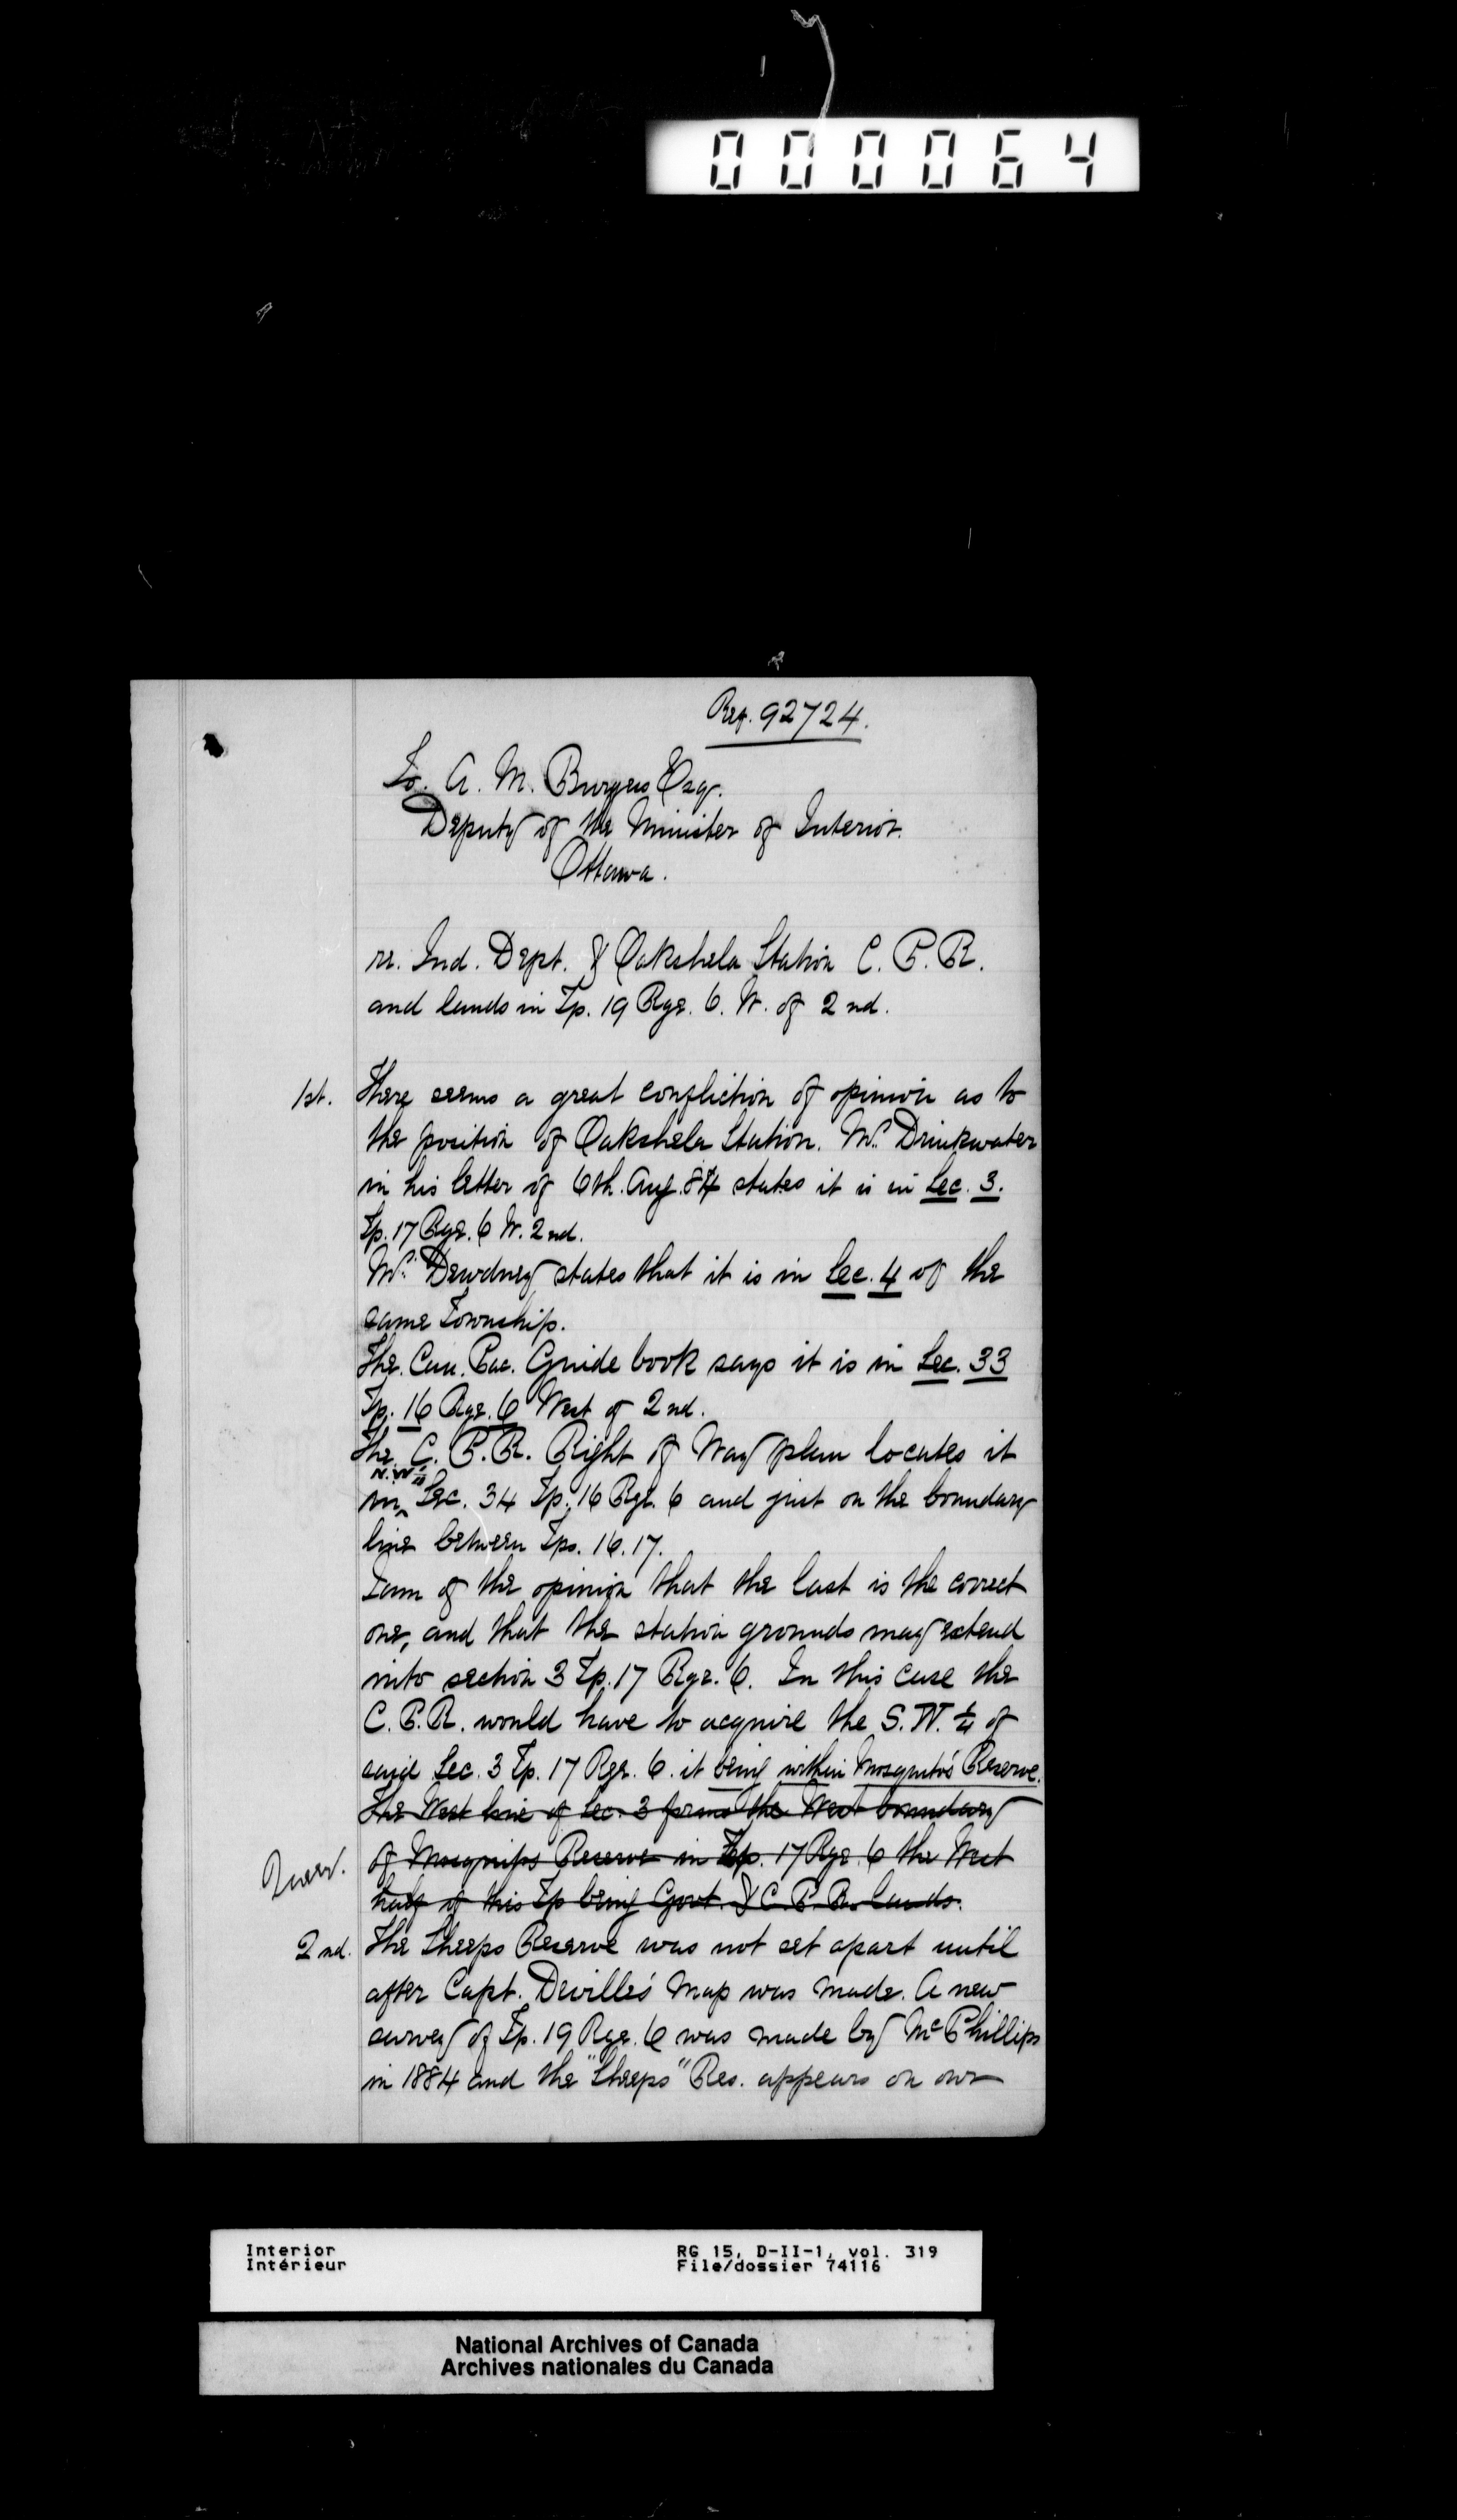 000064
Ref. 92724.
To. A. M. Burgess Esq.
Deputy of the Minister of Interior.
Ottawa.
re. Ind. Dept. & Oakshela Station C. P. R.
and lands in Tp. 19 Rge. 6. W. of 2nd.
1st. There seems a great confliction of opinion as to
the position of Oakshela Station. Mr. Drinkwater
in his letter of 6th. Aug. 84 states it is in Sec. 3.
Tp. 17 Rge. 6 W. 2nd.
Mr. Dewdney states that it is in Sec. 4 of the
same Township.
The Can. Pac. Guide book says it is in Sec. 33
Tp. 16 Rge. 6 West of 2nd.
The C. P. R. Right of Way plan locates it
N.W¼
in Sec. 34 Tp. 16 Rge. 6 and just on the boundary
line between Tps. 16. 17.
I am of the opinion that the last is the correct
one, and that the station grounds may extend
into section 3 Tp. 17 Rge. 6. In this case the
C. P. R. would have to acquire the S. W. ¼ of
said Sec. 3 Tp. 17 Rge. 6. it being within Mosquito's Reserve.
The West line of Sec. 3 forms the West boundary
of Reserve in Tp. 17 Rge. 6 the West
half of this Tp being Govt. & C. P. R. lands.
2nd. The Sheeps Reserve was not set apart until
after Capt. Deville's Map was made. A new
survey of Tp. 19 Rge. 6 was made by McPhillips
in 1884 and the "Sheeps" Res. appears on our
Interior
Intérieur
RG 15, D-II-1, vol. 319
File/dossier 74116
National Archives of Canada
Archives nationales du Canada